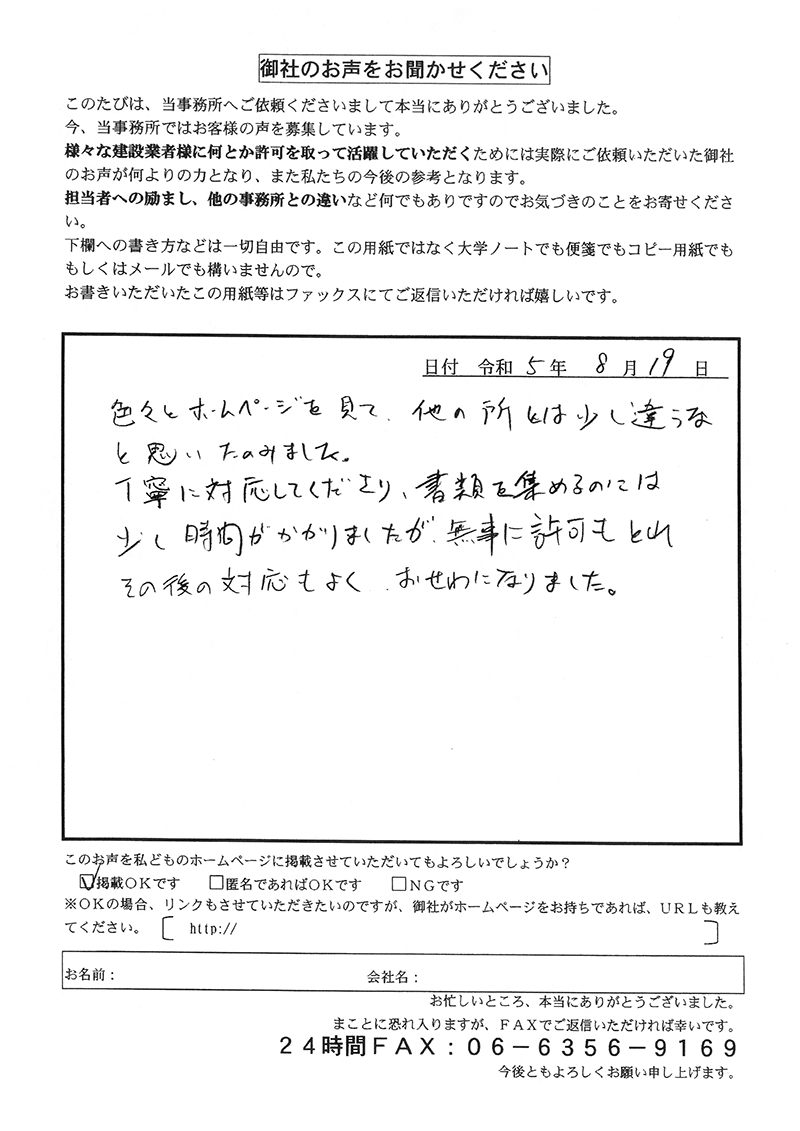 御社のお声をお聞かせください
このたびは、当事務所へご依頼くださいまして本当にありがとうございました。
今、当事務所ではお客様の声を募集しています。
様々な建設業者様に何とか許可を取って活躍していただくためには実際にご依頼いただいた御社
のお声が何よりの力となり、また私たちの今後の参考となります。
担当者への励まし、他の事務所との違いなど何でもありですのでお気づきのことをお寄せくださ
い。
下欄への書き方などは一切自由です。この用紙ではなく大学ノートでも便箋でもコピー用紙でも
もしくはメールでも構いませんので。
お書きいただいたこの用紙等はファックスにてご返信いただければ嬉しいです。
日付 令和 5 年 8 月 19 日
色々とホームページを見て、他の所とは少し違うな
と思いたのみました。
丁寧に対応してくださり、書類を集めるのには
少し時間がかかりましたが、無事に許可もとれ
その後の対応もよく、おせわになりました。
このお声を私どものホームページに掲載させていただいてもよろしいでしょうか？
☑掲載ＯＫです □匿名であればＯＫです □ＮＧです
※ＯＫの場合、リンクもさせていただきたいのですが、御社がホームページをお持ちであれば、ＵＲＬも教え
てください。 [ http:// ]
お名前： 会社名：
お忙しいところ、本当にありがとうございました。
まことに恐れ入りますが、ＦＡＸでご返信いただければ幸いです。
２４時間ＦＡＸ：０６－６３５６－９１６９
今後ともよろしくお願い申し上げます。